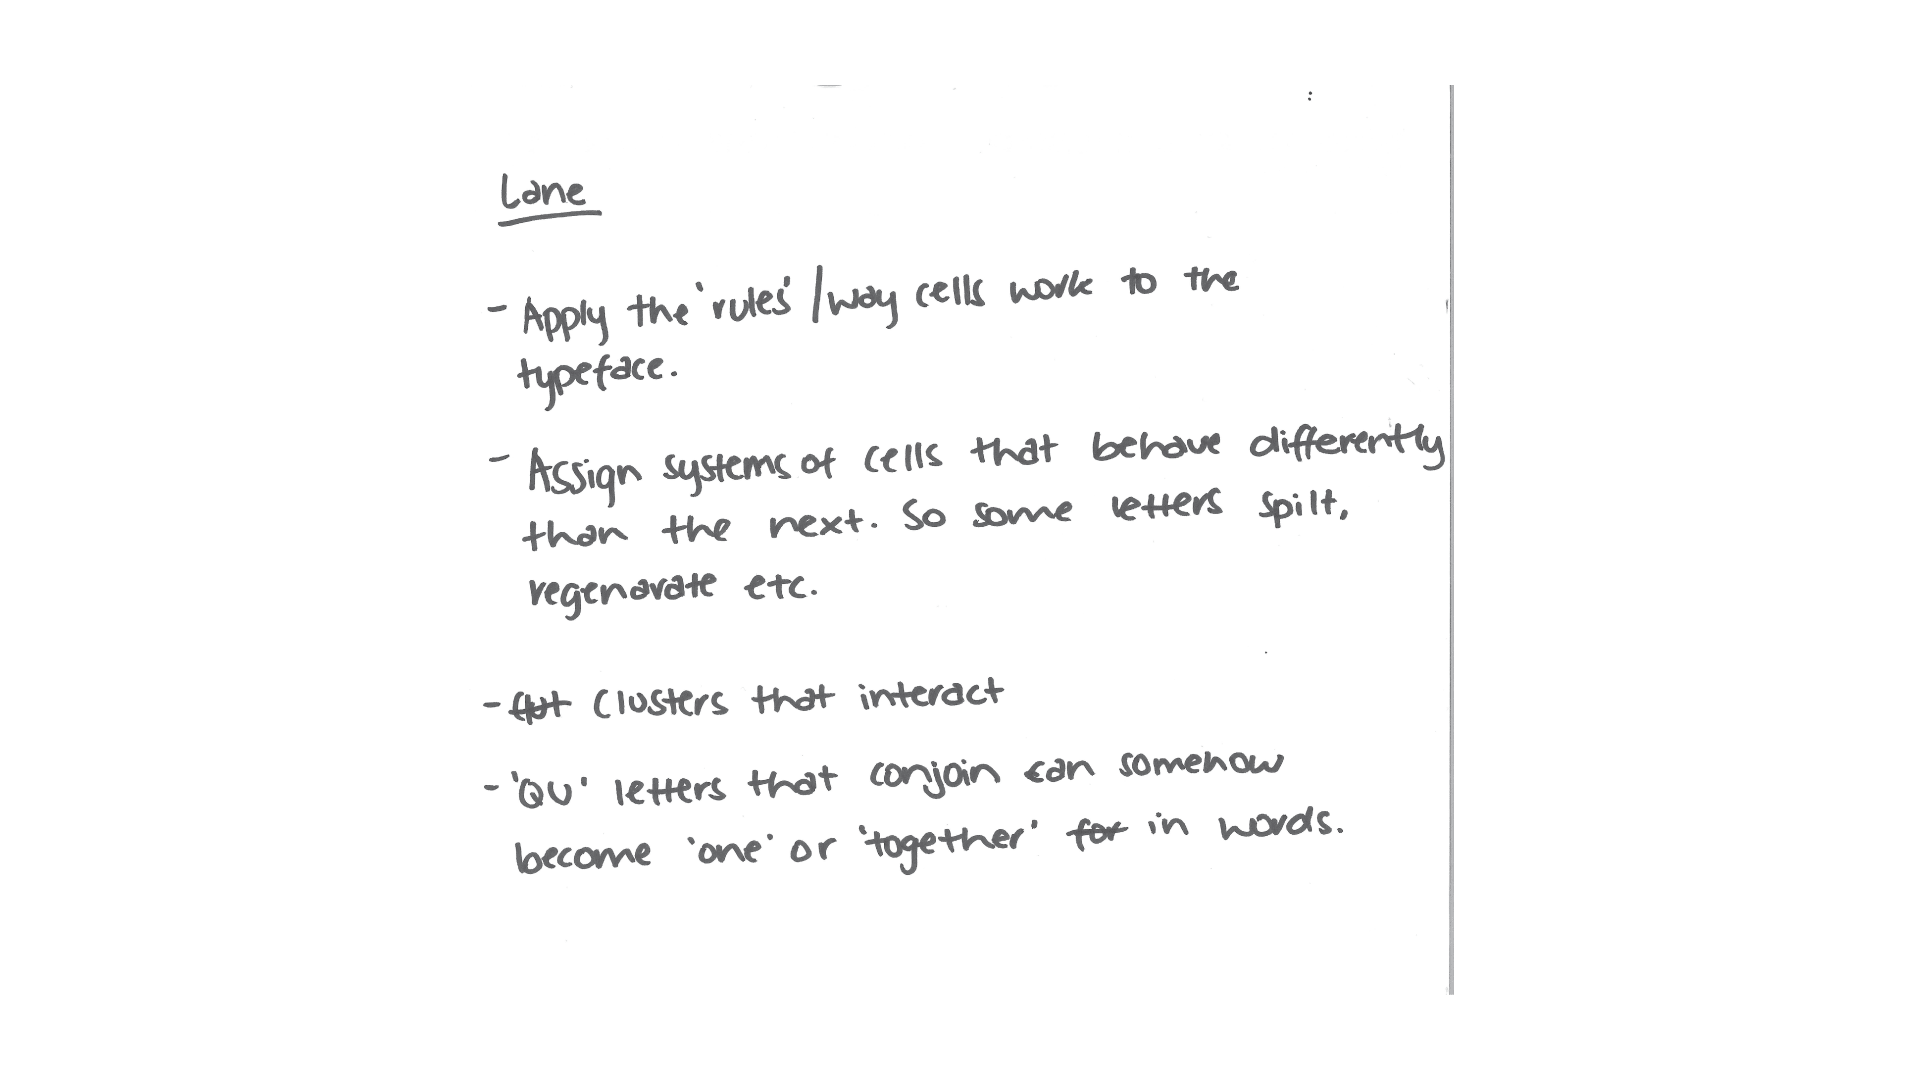 Lane
- Apply the 'rules' / way cells work to the
typeface.
- Assign systems of cells that behave differently
than the next. So some letters spilt,
regenarate etc.
- Clusters that interact
- 'QU' letters that conjoin can somehow
become 'one' or 'together' for in words.